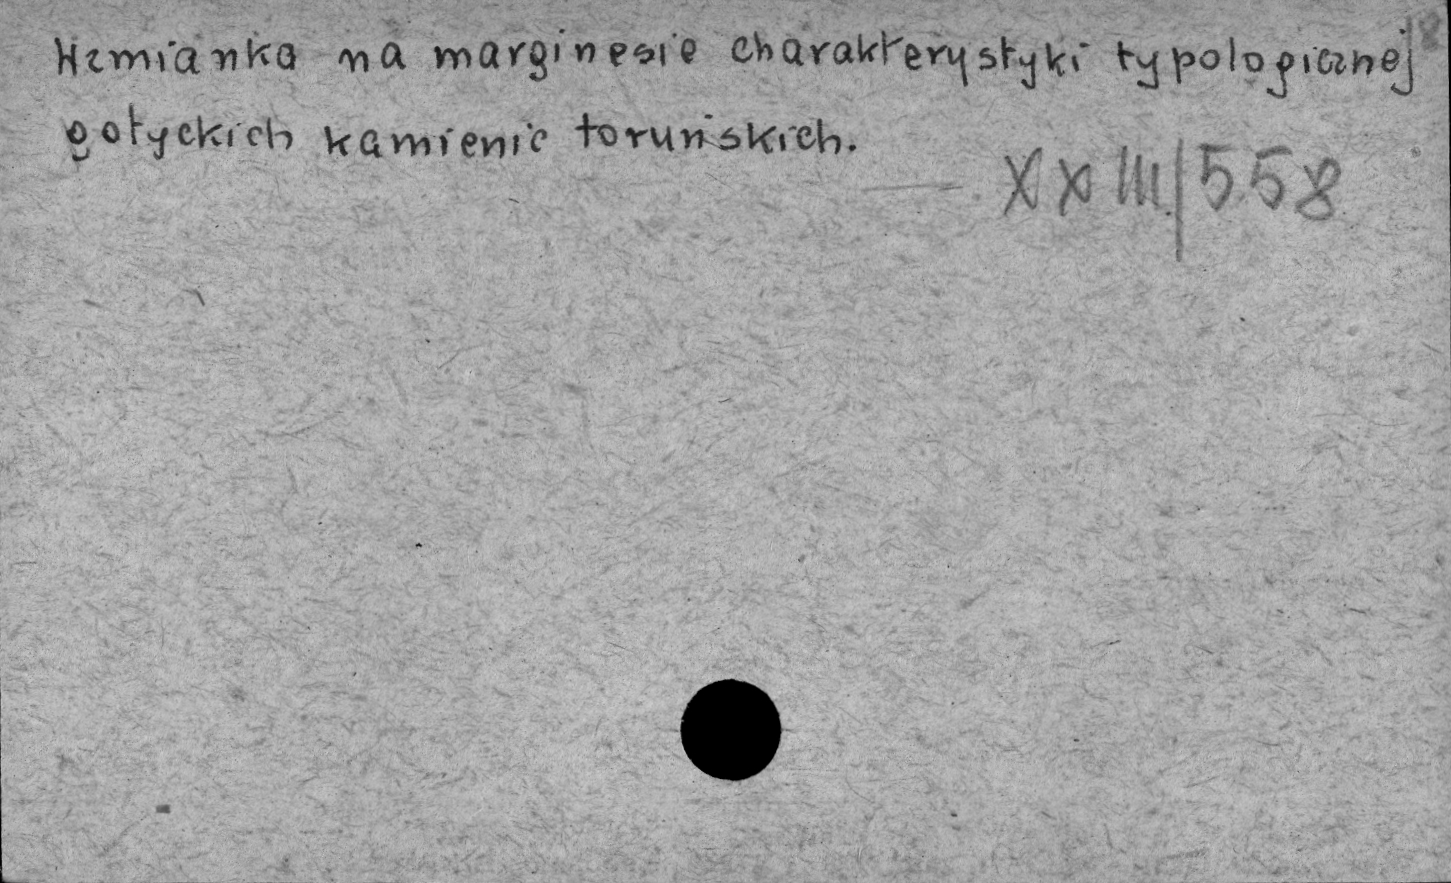 Wzmianka na marginesie charakterystyki typologicznej
gotyckich kamienic toruńskich.
XXIII/558